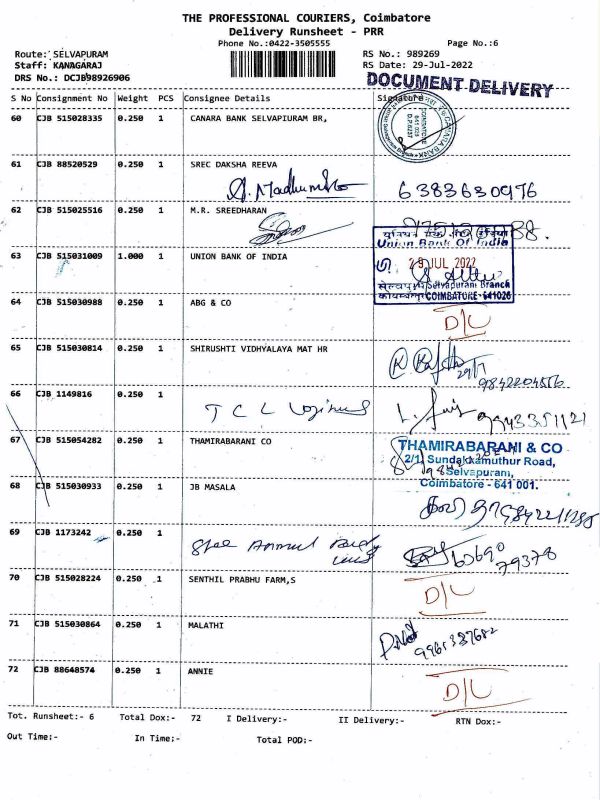 THE PROFESSIONAL COURIERS, Coimbatore
Delivery Runsheet - PRR
Phone No.:0422-3505555 Page No.:6
Route: SELVAPURAM RS No.: 989269
Staff: KANAGARAJ RS Date: 29-Jul-2022
DRS No.: DCJB98926906
DOCUMENT DELIVERY
S No Consignment No Weight PCS Consignee Details Signature
60 CJB 515028335 0.250 1 CANARA BANK SELVAPIURAM BR,
61 CJB 88520529 0.250 1 SREC DAKSHA REEVA
6383630976
62 CJB 515025516 0.250 1 M.R. SREEDHARAN
63 CJB 515031009 1.000 1 UNION BANK OF INDIA
Union Bank Of India
29 JUL 2022
Selvapuram Branch
COIMBATORE-641026
64 CJB 515030988 0.250 1 ABG & CO
D/L
65 CJB 515030814 0.250 1 SHIRUSHTI VIDHYALAYA MAT HR
29/7
66 CJB 1149816 0.250 1
T C L
67 CJB 515054282 0.250 1 THAMIRABARANI CO
THAMIRABARANI & CO
2/1, Sundakkamuthur Road,
Selvapuram,
Coimbatore - 641 001.
68 CJB 515030933 0.250 1 JB MASALA
69 CJB 1173242 0.250 1
Shee Annul
70 CJB 515028224 0.250 1 SENTHIL PRABHU FARM,S
D/L
71 CJB 515030864 0.250 1 MALATHI
72 CJB 88648574 0.250 1 ANNIE
D/L
Tot. Runsheet:- 6 Total Dox:- 72 I Delivery:- II Delivery:- RTN Dox:-
Out Time:- In Time:- Total POD:-